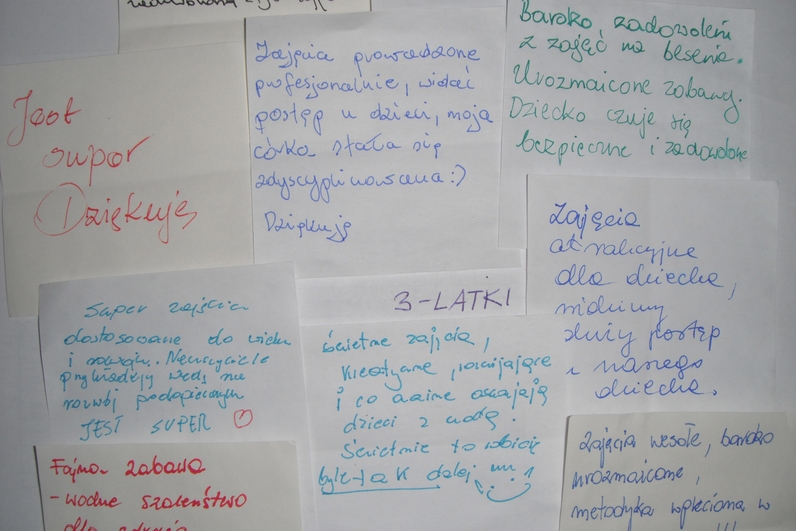 Jest
super
Dziękuję
Zajęcia prowadzone
profesjonalnie, widać
postęp u dzieci, moja
córka stała się
zdyscyplinowana :)
Dziękuję
Bardzo zadowoleni
z zajęć na basenie.
Urozmaicone zabawy.
Dziecko czuje się
bezpieczne i zadowolone
Zajęcia
atrakcyjne
dla dziecka,
widzimy
duży postęp
u naszego
dziecka.
3-LATKI
Super zajęcia
dostosowane do wieku
i rozwoju. Nauczyciele
przykładają wagę na
rozwój podopiecznych
JEST SUPER
Świetne zajęcia,
kreatywne, rozwijające
i co ważne oswajają
dzieci z wodą.
Świetnie to robicie
byle tak dalej !!!
Fajna zabawa
- wodne szaleństwo
dla zdrowia
Zajęcia wesołe, bardzo
urozmaicone,
metodyka wpleciona w